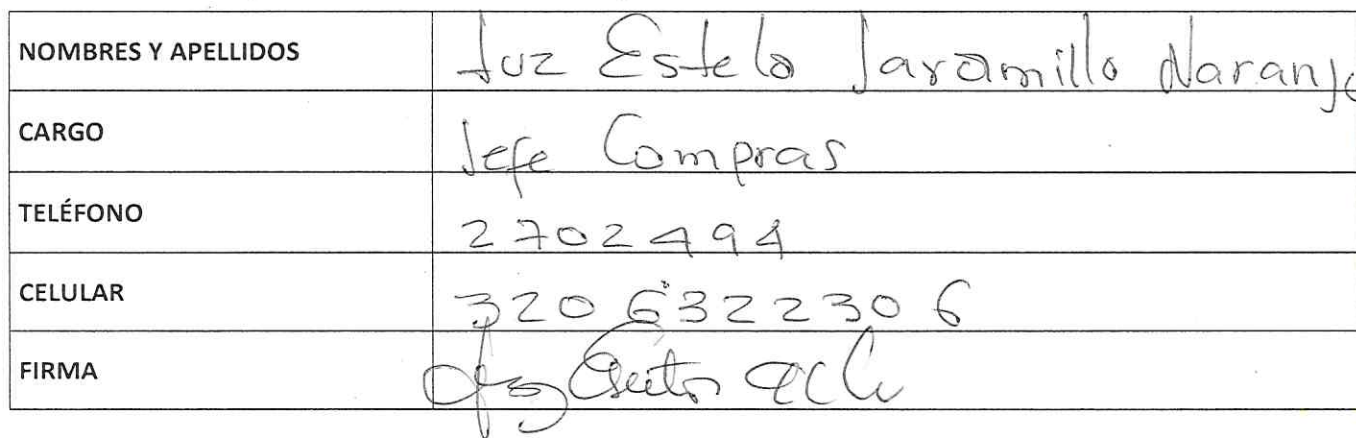 NOMBRES Y APELLIDOS Luz Estela Jaramillo Naranjo
CARGO Jefe Compras
TELÉFONO 2702494
CELULAR 320 6322306
FIRMA